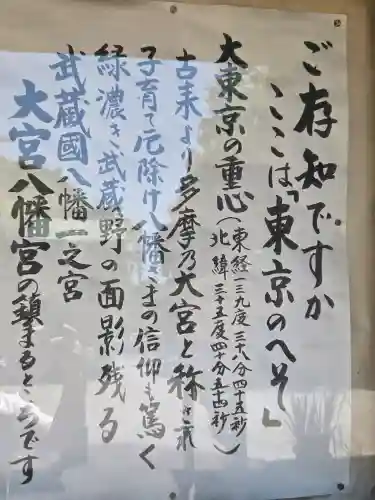 ご存知ですか
ここは「東京のへそ」
大東京の重心（東経一三九度三十八分四十五秒
北緯三十五度四十分五十四秒）
古来より多摩乃大宮と称され
子育て厄除け八幡さまの信仰も篤く
緑濃き武蔵野の面影残る
武蔵國八幡一之宮
大宮八幡宮の鎮まるところです